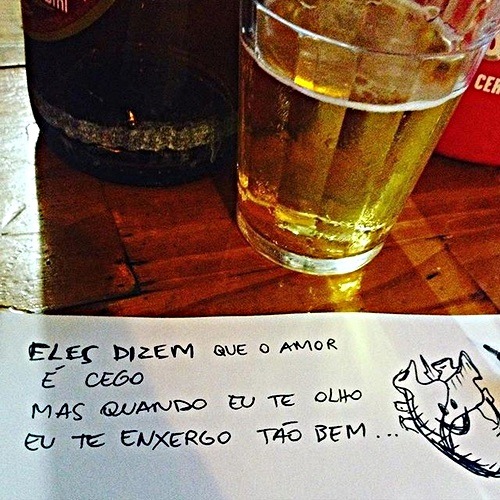 CER
ELES DIZEM QUE O AMOR
É CEGO
MAS QUANDO EU TE OLHO
EU TE ENXERGO TÃO BEM...